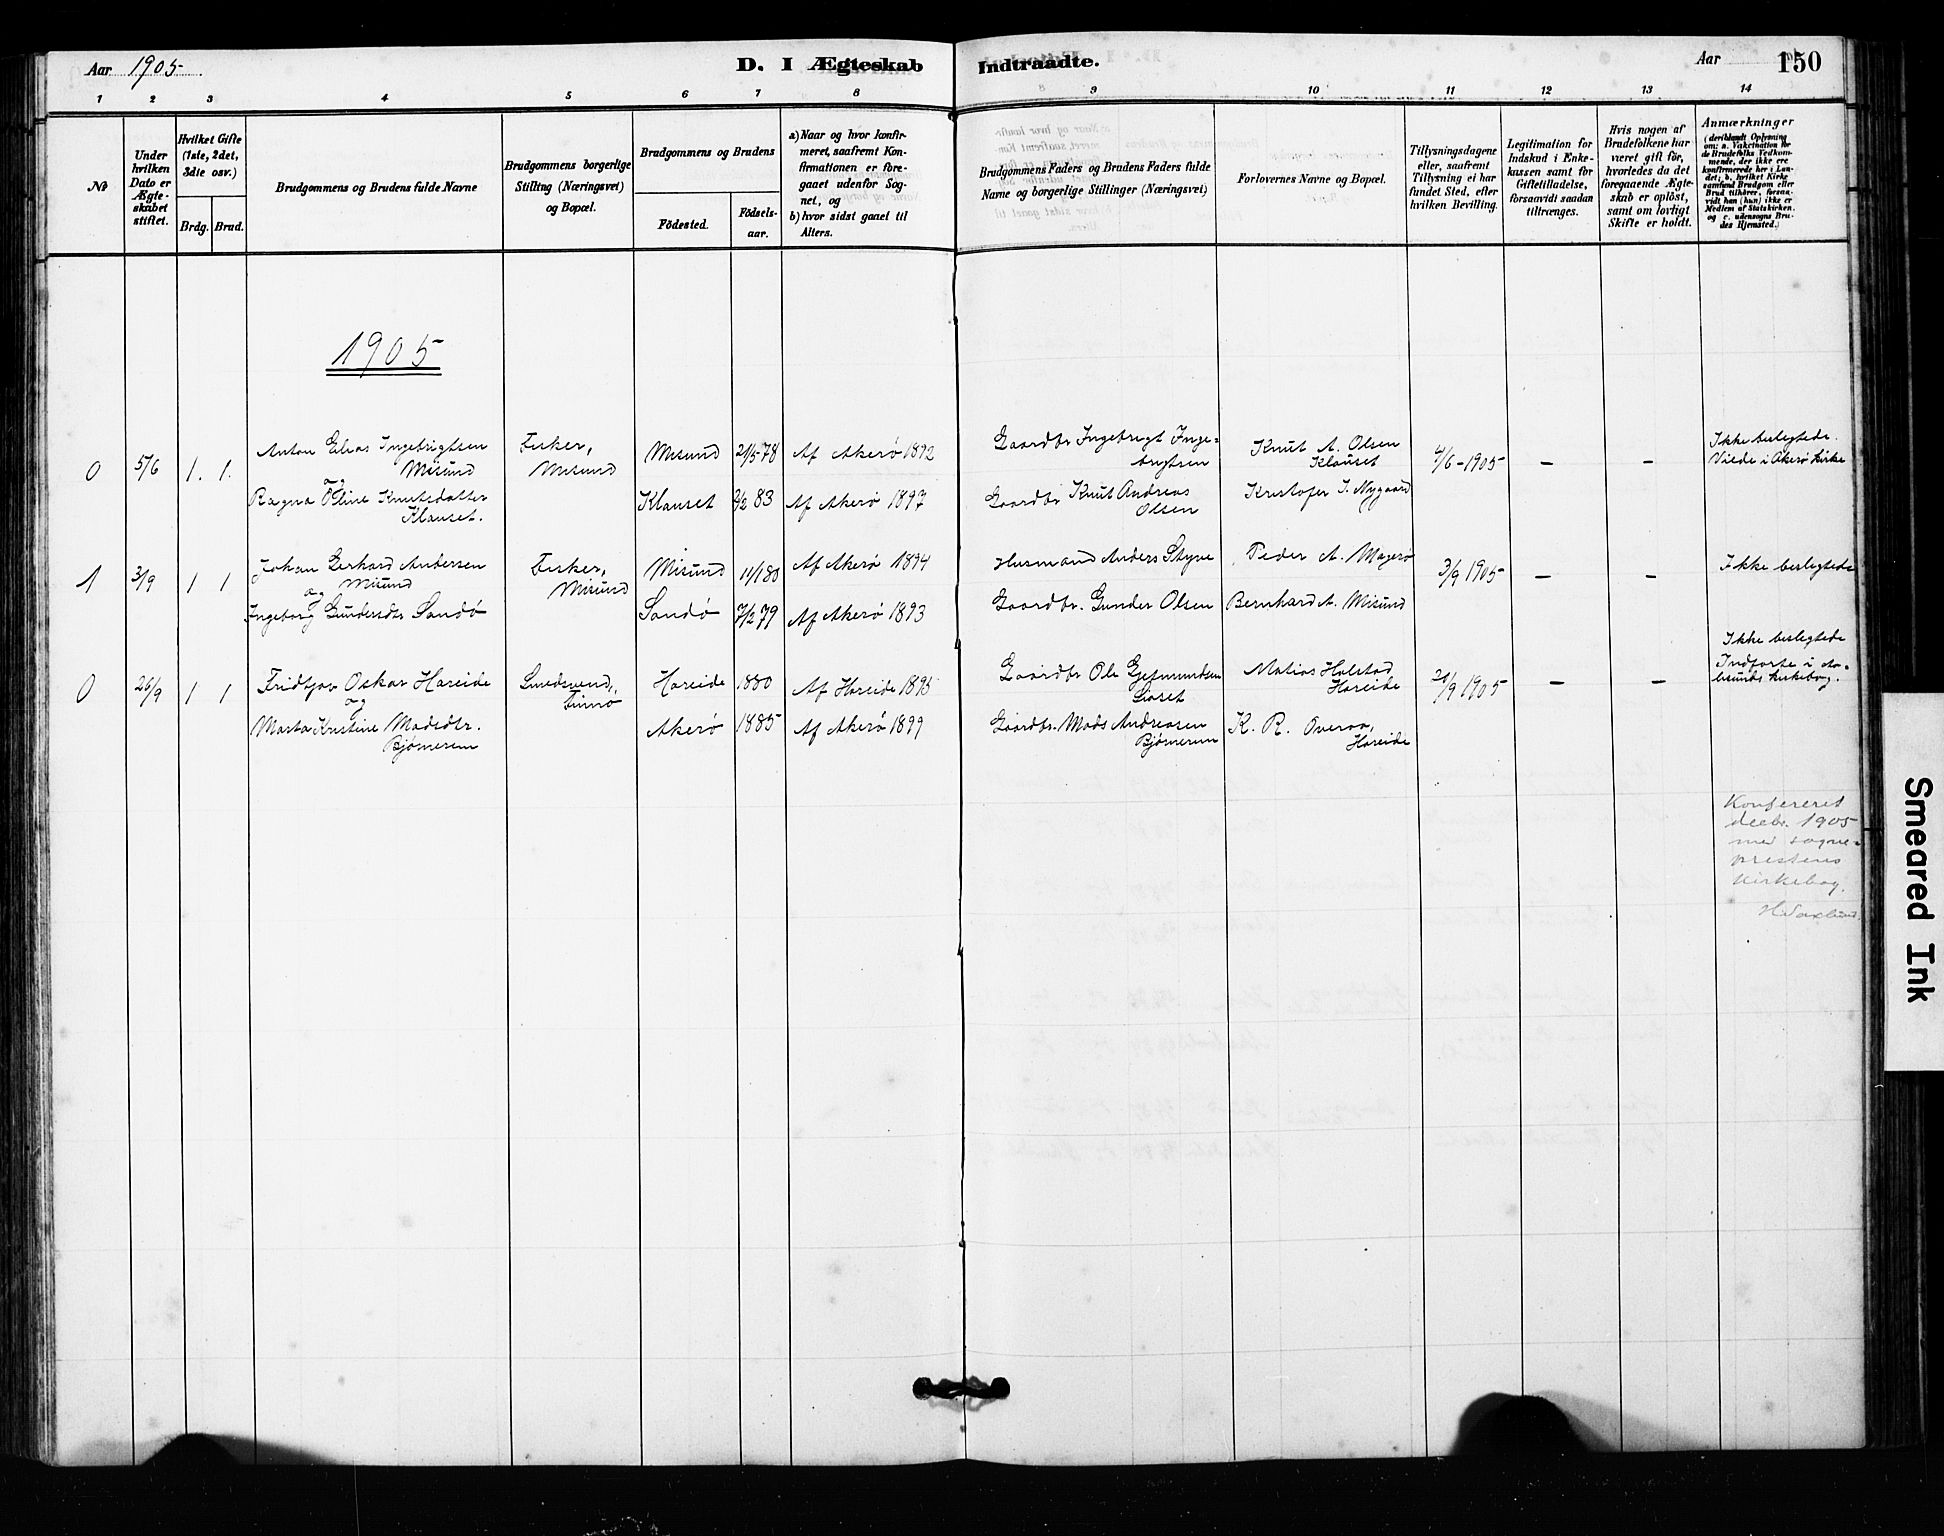 Aar 1905
D. I Ægteskab Indtraadte.
Aar
150
1 2 3 4 5 6 7 8 9 10 11 12 13 14
№
Under hvilken Dato er Ægteskabet stiftet.
Hvilket Gifte (1ste, 2det, 3die osv.)
Brdg. Brud.
Brudgommens og Brudens fulde Navne
Brudgommens borgerlige Stilling (Næringsvei) og Bopæl.
Brudgommens og Brudens
Födested.
Födselsaar.
a) Naar og hvor konfirmeret, saafremt Konfirmationen er foregaaet udenfor Sognet, og
b) hvor sidst gaaet til Alters.
Brudgommens Faders og Brudens Faders fulde Navne og borgerlige Stillinger (Næringsvei)
Forlovernes Navne og Bopæl.
Tillysningsdagene eller, saafremt Tillysning ei har fundet Sted, efter hvilken Bevilling.
Legitimation for Indskud i Enkekassen samt for Giftetilladelse, forsaavidt saadan tiltrænges.
Hvis nogen af Brudefolkene har været gift før, hvorledes da det foregaaende Ægteskab er oplöst, samt om lovligt Skifte er holdt.
Anmærkninger
(deriblandt Oplysning om: a. Vakcination for de Brudefolks Vedkommende, der ikke ere konfirmerede her i Landet; b. hvilket Kirkesamfund Brudgom eller Brud tilhører, forsaavidt han (hun) ikke er Medlem af Statskirken. og c. udensogns Brudes Hjemsted.)
1905
0 5/6 1. 1.
Anton Elias Ingebrigtsen
Misund
og
Ragna Oline Knutsdatter
Klauset.
Fisker,
Misund
Misund 21/5 78 Af Akerö 1892
Klauset 2/2 83 Af Akerö 1897
Gaardbr Ingebrigt Inge=
brigtsen
Gaardbr Knut Andreas
Olsen
Knut A. Olsen
Klauset
Kristofer J. Nygaard
4/6 - 1905 – –
Ikke beslegtede.
Viede i Akerø Kirke
1 3/9 1 1
Johan Gerhard Andersen
Misund
og
Ingeborg Gundersdtr Sandö
Fisker,
Misund
Misund 11/1 80 Af Akerö 1894
Sandö 7/2 79 Af Akerö 1893
Husmand Anders Styve
Gaardbr. Gunder Olsen
Peder A. Magerø
Bernhard A. Misund
3/9 1905 – –
Ikke beslegtede
0 26/9 1 1
Fridtjov Oskar Hareide
og
Marta Kristine Madsdtr.
Bjørnerem
Smedsvend,
Finnö
Hareide 1880 Af Hareide 1895
Akerö 1885 Af Akerö 1899
Gaardbr Ole
Liaset
Gaardbr. Mads Andreasen
Bjørnerem
Matias Halstad
Hareide
K. R. Overaa,
Hareide
20/9 1905 – –
Ikke beslegtede
Indførte i
kirkebog.
Konfereret
decbr. 1905
med sogne-
prestens
kirkebog.
H. Saxlund.
Smeared Ink